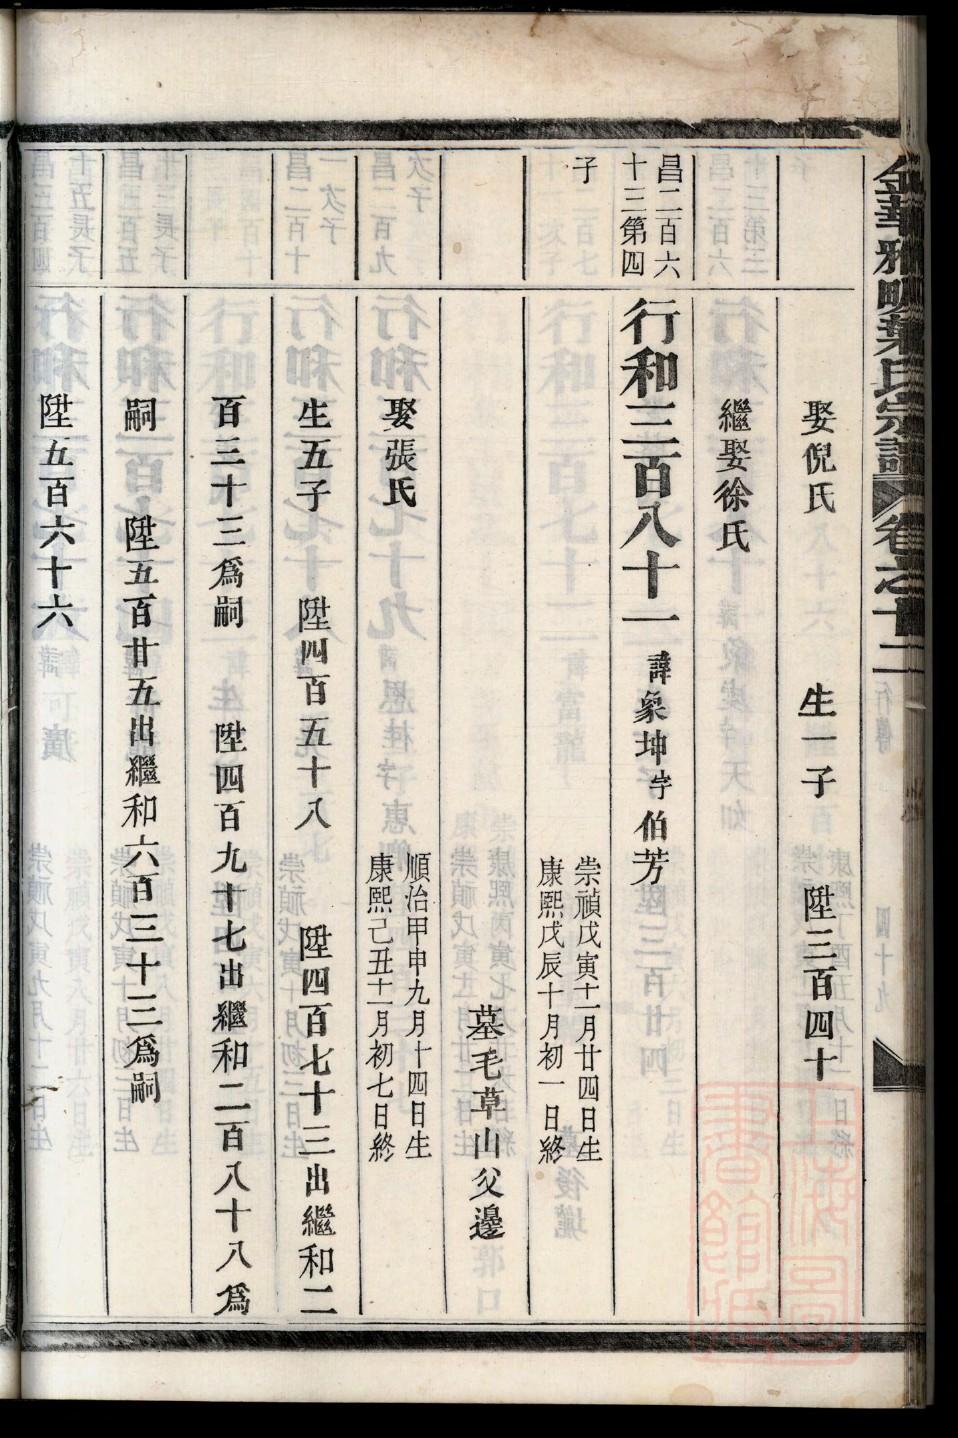 金華雅畈葉氏宗譜 卷之十二
娶倪氏 生一子 陞三百四十
繼娶徐氏
昌二百六十三第四子
行和三百八十一 諱象坤字伯芳
崇禎戊寅十一月廿四日生
康熙戊辰十月初一日終
墓毛草山父邊
娶張氏
順治甲申九月十四日生
康熙己丑十一月初七日終
生五子 陞四百五十八 陞四百七十三出繼和二
百三十三爲嗣 陞四百九十七出繼和二百八十八爲
嗣 陞五百廿五出繼和六百三十三爲嗣
陞五百六十六